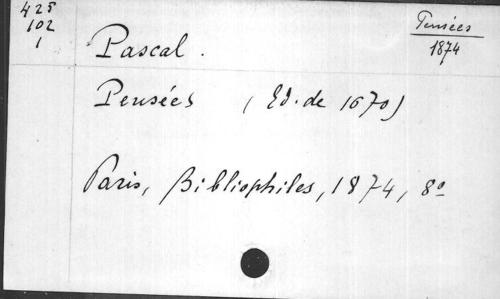 425
102
1
Pensées
1874
Pascal.
Pensées (Ed. de 1670)
Paris, Bibliophiles, 1874, 8º